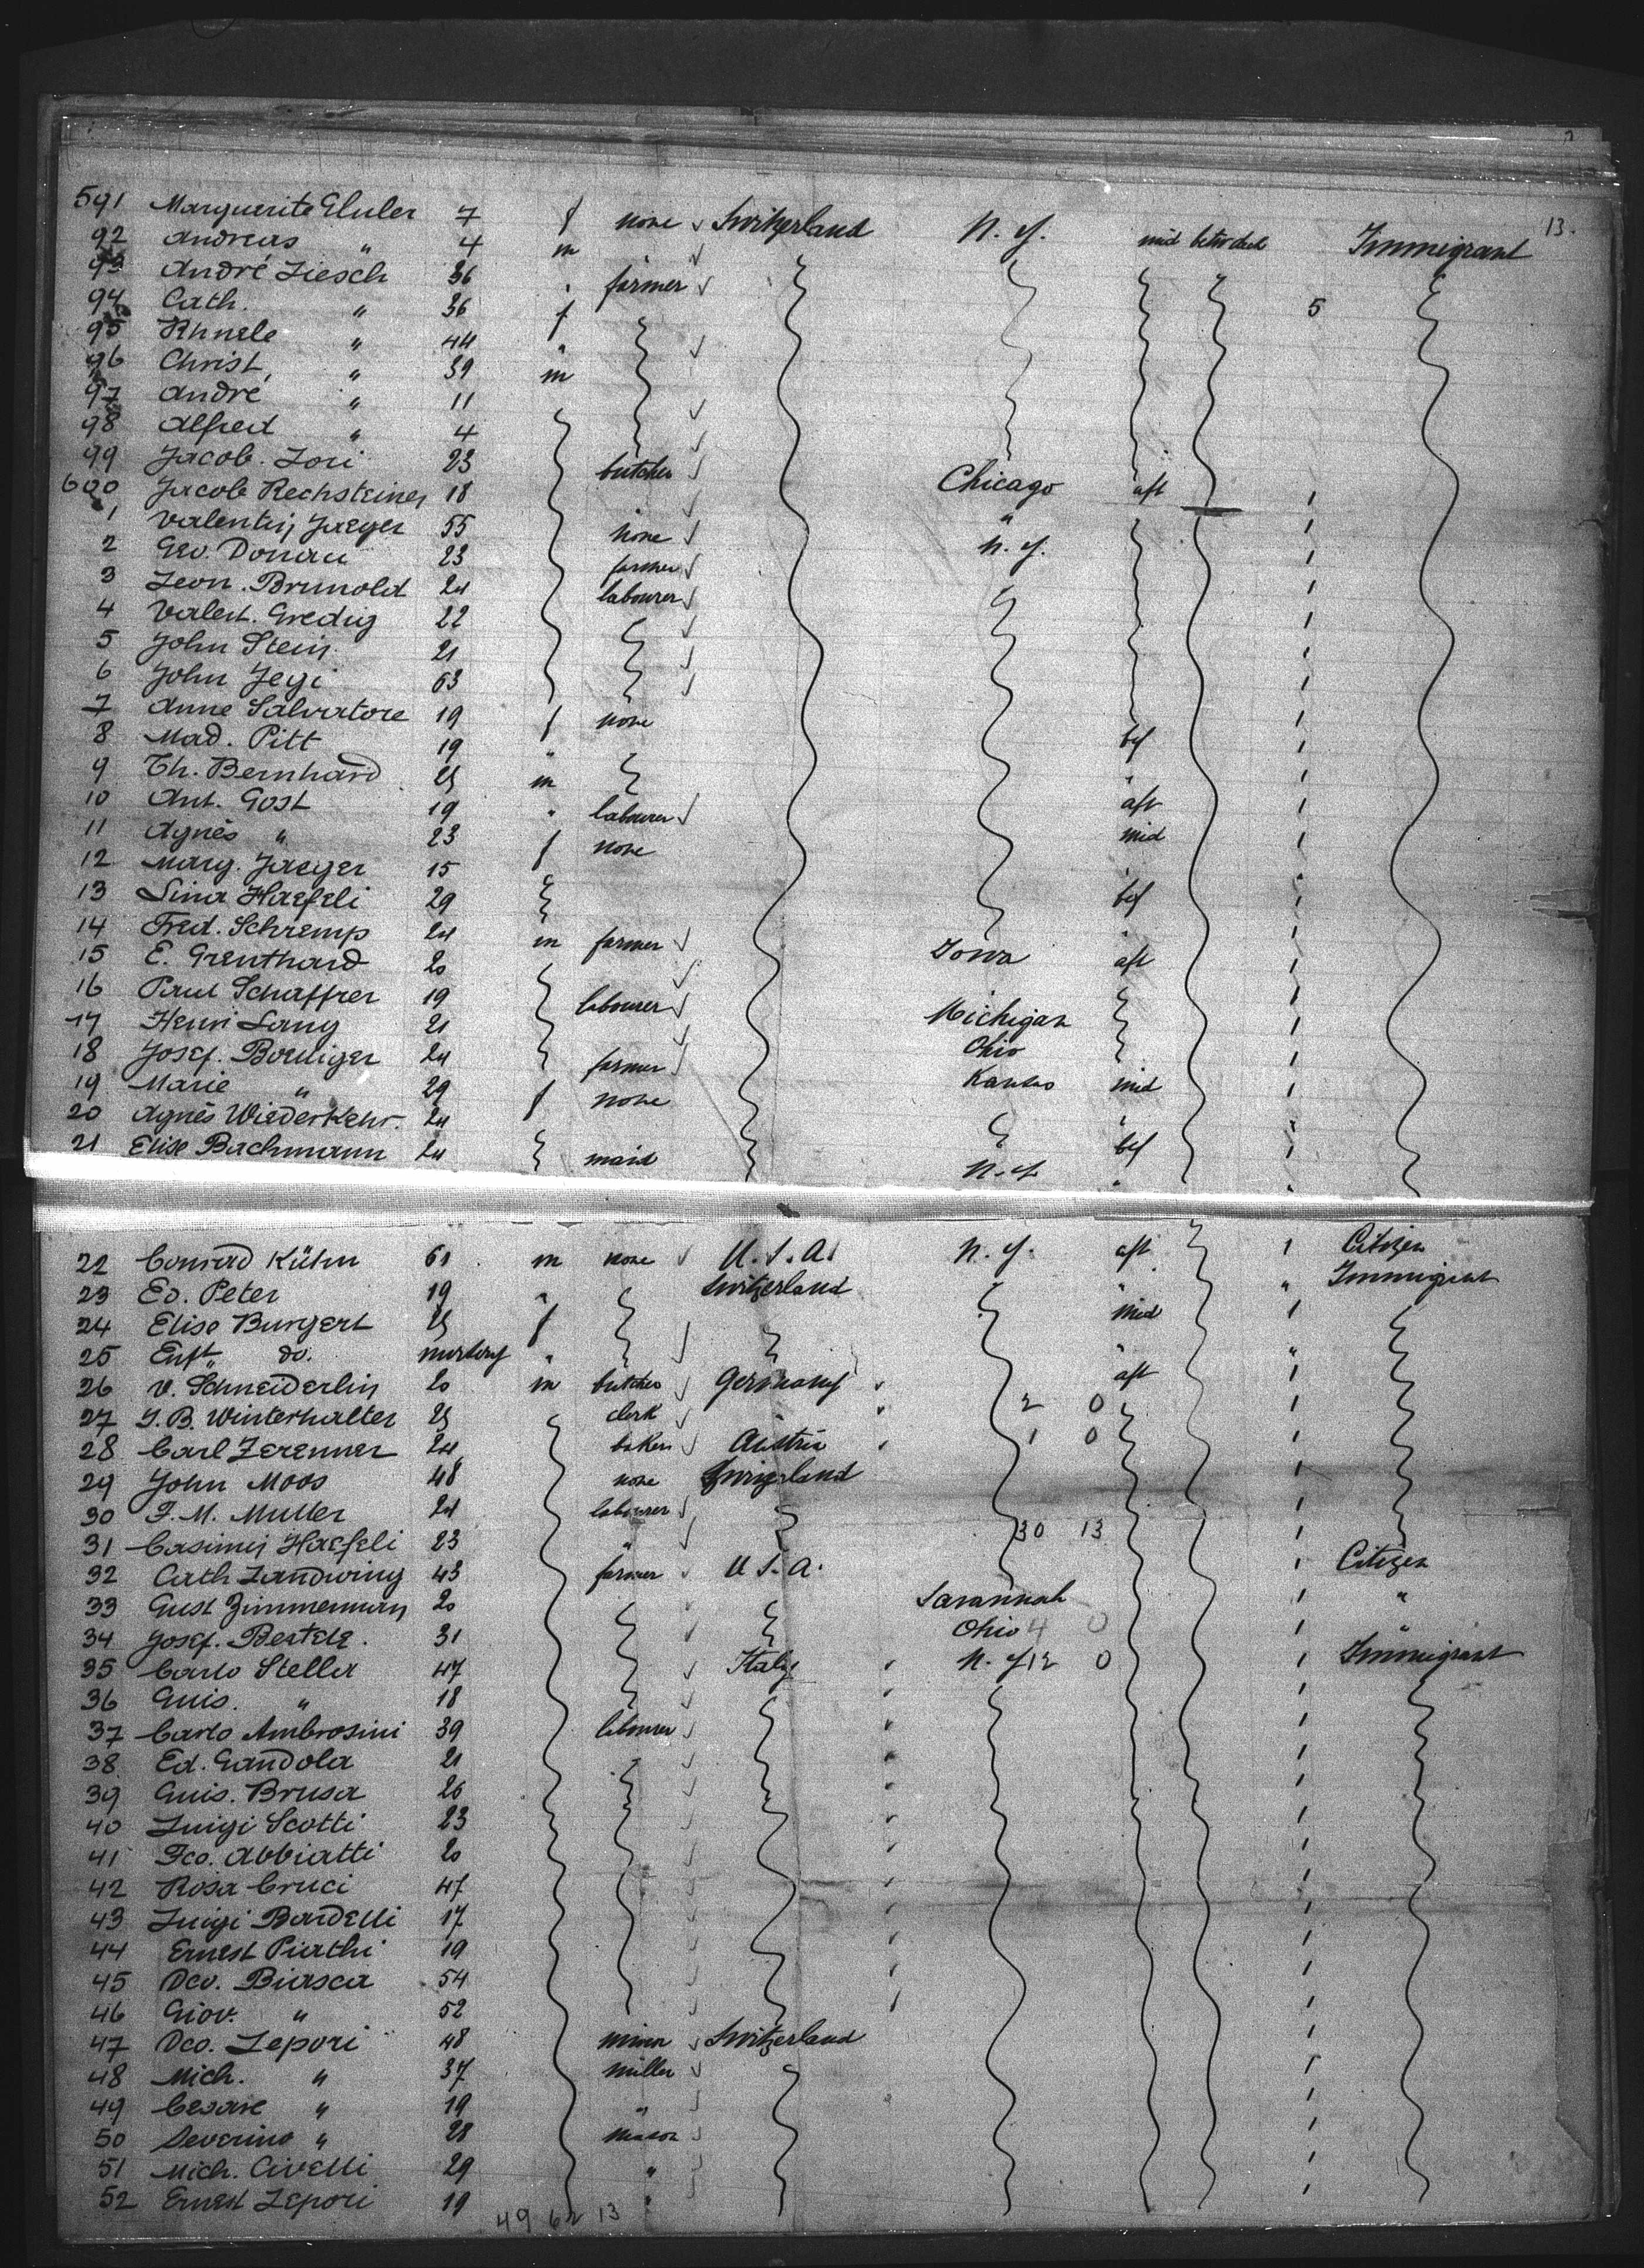 13.
591 Marguerite Gluler 7 f none Switzerland N. Y. mid betw deck Immigrant
92 Andreas " 4 m
93 André Liesch 36 " farmer
94 Cath. " 36 f 5
95 " 44 "
96 Christ, " 39 m
97 André " 11
98 Alfred " 4
99 Jacob. Lori 23 butcher Chicago aft
600 Jacob Rechsteiner 18 " 1
1 Valentin Jaeger 55 none N. Y. 1
2 Geo. Donau 23 farmer 1
3 Leon. Brunold 24 labourer 1
4 Valent. Gredig 22 1
5 John Stein 21 1
6 John Jegi 63 1
7 Anne Salvatore 19 f none 1
8 Mad. Pitt 19 " bef 1
9 Th. Bernhard 25 m " 1
10 Ant. Gost 19 " labourer aft 1
11 Agnès " 23 f none mid 1
12 Marg. Jaeger 15 "
13 Lina Haefeli 29 bef 1
14 Fred. Schremp 24 m farmer " 1
15 E. Grenthard 20 Iowa aft 1
16 Paul Schaffner 19 labourer 1
17 Henri Lang 21 Michigan 1
18 Josef. Bouliger 24 farmer Ohio 1
19 Marie " 29 f none Kansas mid 1
20 Agnès Wiederkehr. 24 "
21 Elise Bachmann 24 maid N. Y. bef 1
22 Conrad Kühn 61 m none U. S. A. N. Y. aft 1 Citizen
23 Ed. Peter 19 " Switzerland " " Immigrant
24 Elise Burgert 25 f mid 1
25 " do. " " "
26 V. Schneiderlin 20 m butcher Germany aft 1
27 J. B. Winterhalter 25 clerk " 2 0 1
28 Carl Zerenner 24 baker Austria 1 0 1
29 John Moos 48 none Switzerland 1
30 F. M. Muller 24 labourer 1
31 Casimir Haefeli 23 " 30 13 1
32 Cath Landwing 43 farmer U. S. A. 1 Citizen
33 Gust Zimmerman 20 Savannah 1 "
34 Josef. Bestele. 31 Ohio 4 0 1 "
35 Carlo Stella 47 Italy N. Y 12 0 1 Immigrant
36 Guis. " 18 1
37 Carlo Ambrosini 39 labourer 1
38 Ed. Gandola 21 1
39 Guis. Brusa 26 1
40 Luigi Scotti 23 1
41 Fco. Abbiatti 20 1
42 Rosa Cruci 47 1
43 Luigi Bardelli 17 1
44 Ernest Piathi 19 1
45 Dco. Biasca 54 1
46 Giov. " 52 1
47 Dco. Lepori 48 miner Switzerland 1
48 Mich. " 37 miller 1
49 Cesare " 19 " 1
50 Severino " 28 mason 1
51 Mich. Civelli 29 " 1
52 Ernest Lepori 19 " 1
49 62 13